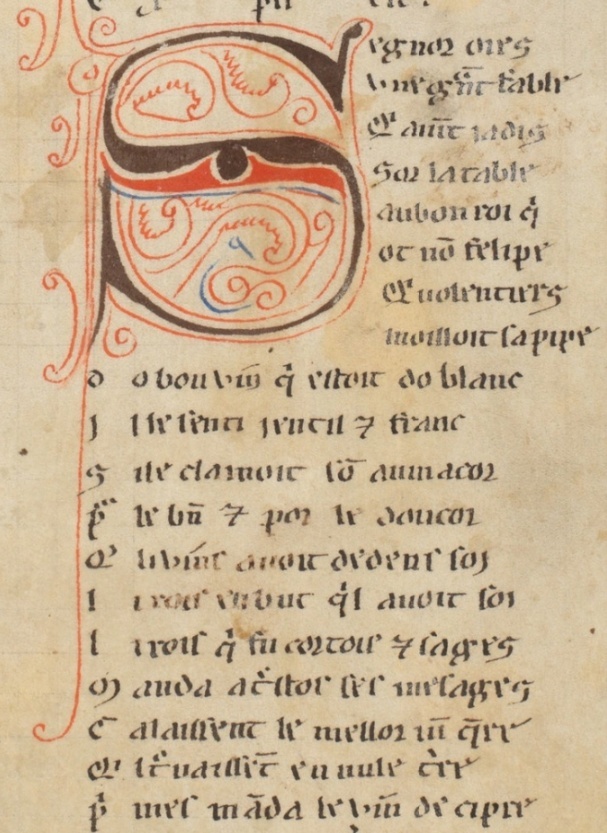 Segnor oies
vne gnt fable
Qi auit jadis
Sor la table
au bon roi q̇
ot nō felipe
Qi uolentiers
moilloit sa pipe
d o bon vin q̇ estoit do blanc
J l le senti jentil ⁊ franc
S i le clamoit sō aumacor
p̃ le bñ ⁊ por le doucor
Q̇ li vins auoit dedens soj
l i rois en but q̇l auoit soi
l i rois q̇ fu cortois ⁊ sages
M anda a trestos ses mesages
C alaissent le mellor uī q̄re
Q̇ l truaissēt en nule t̃re
p̃ mes māda le vin de cipre